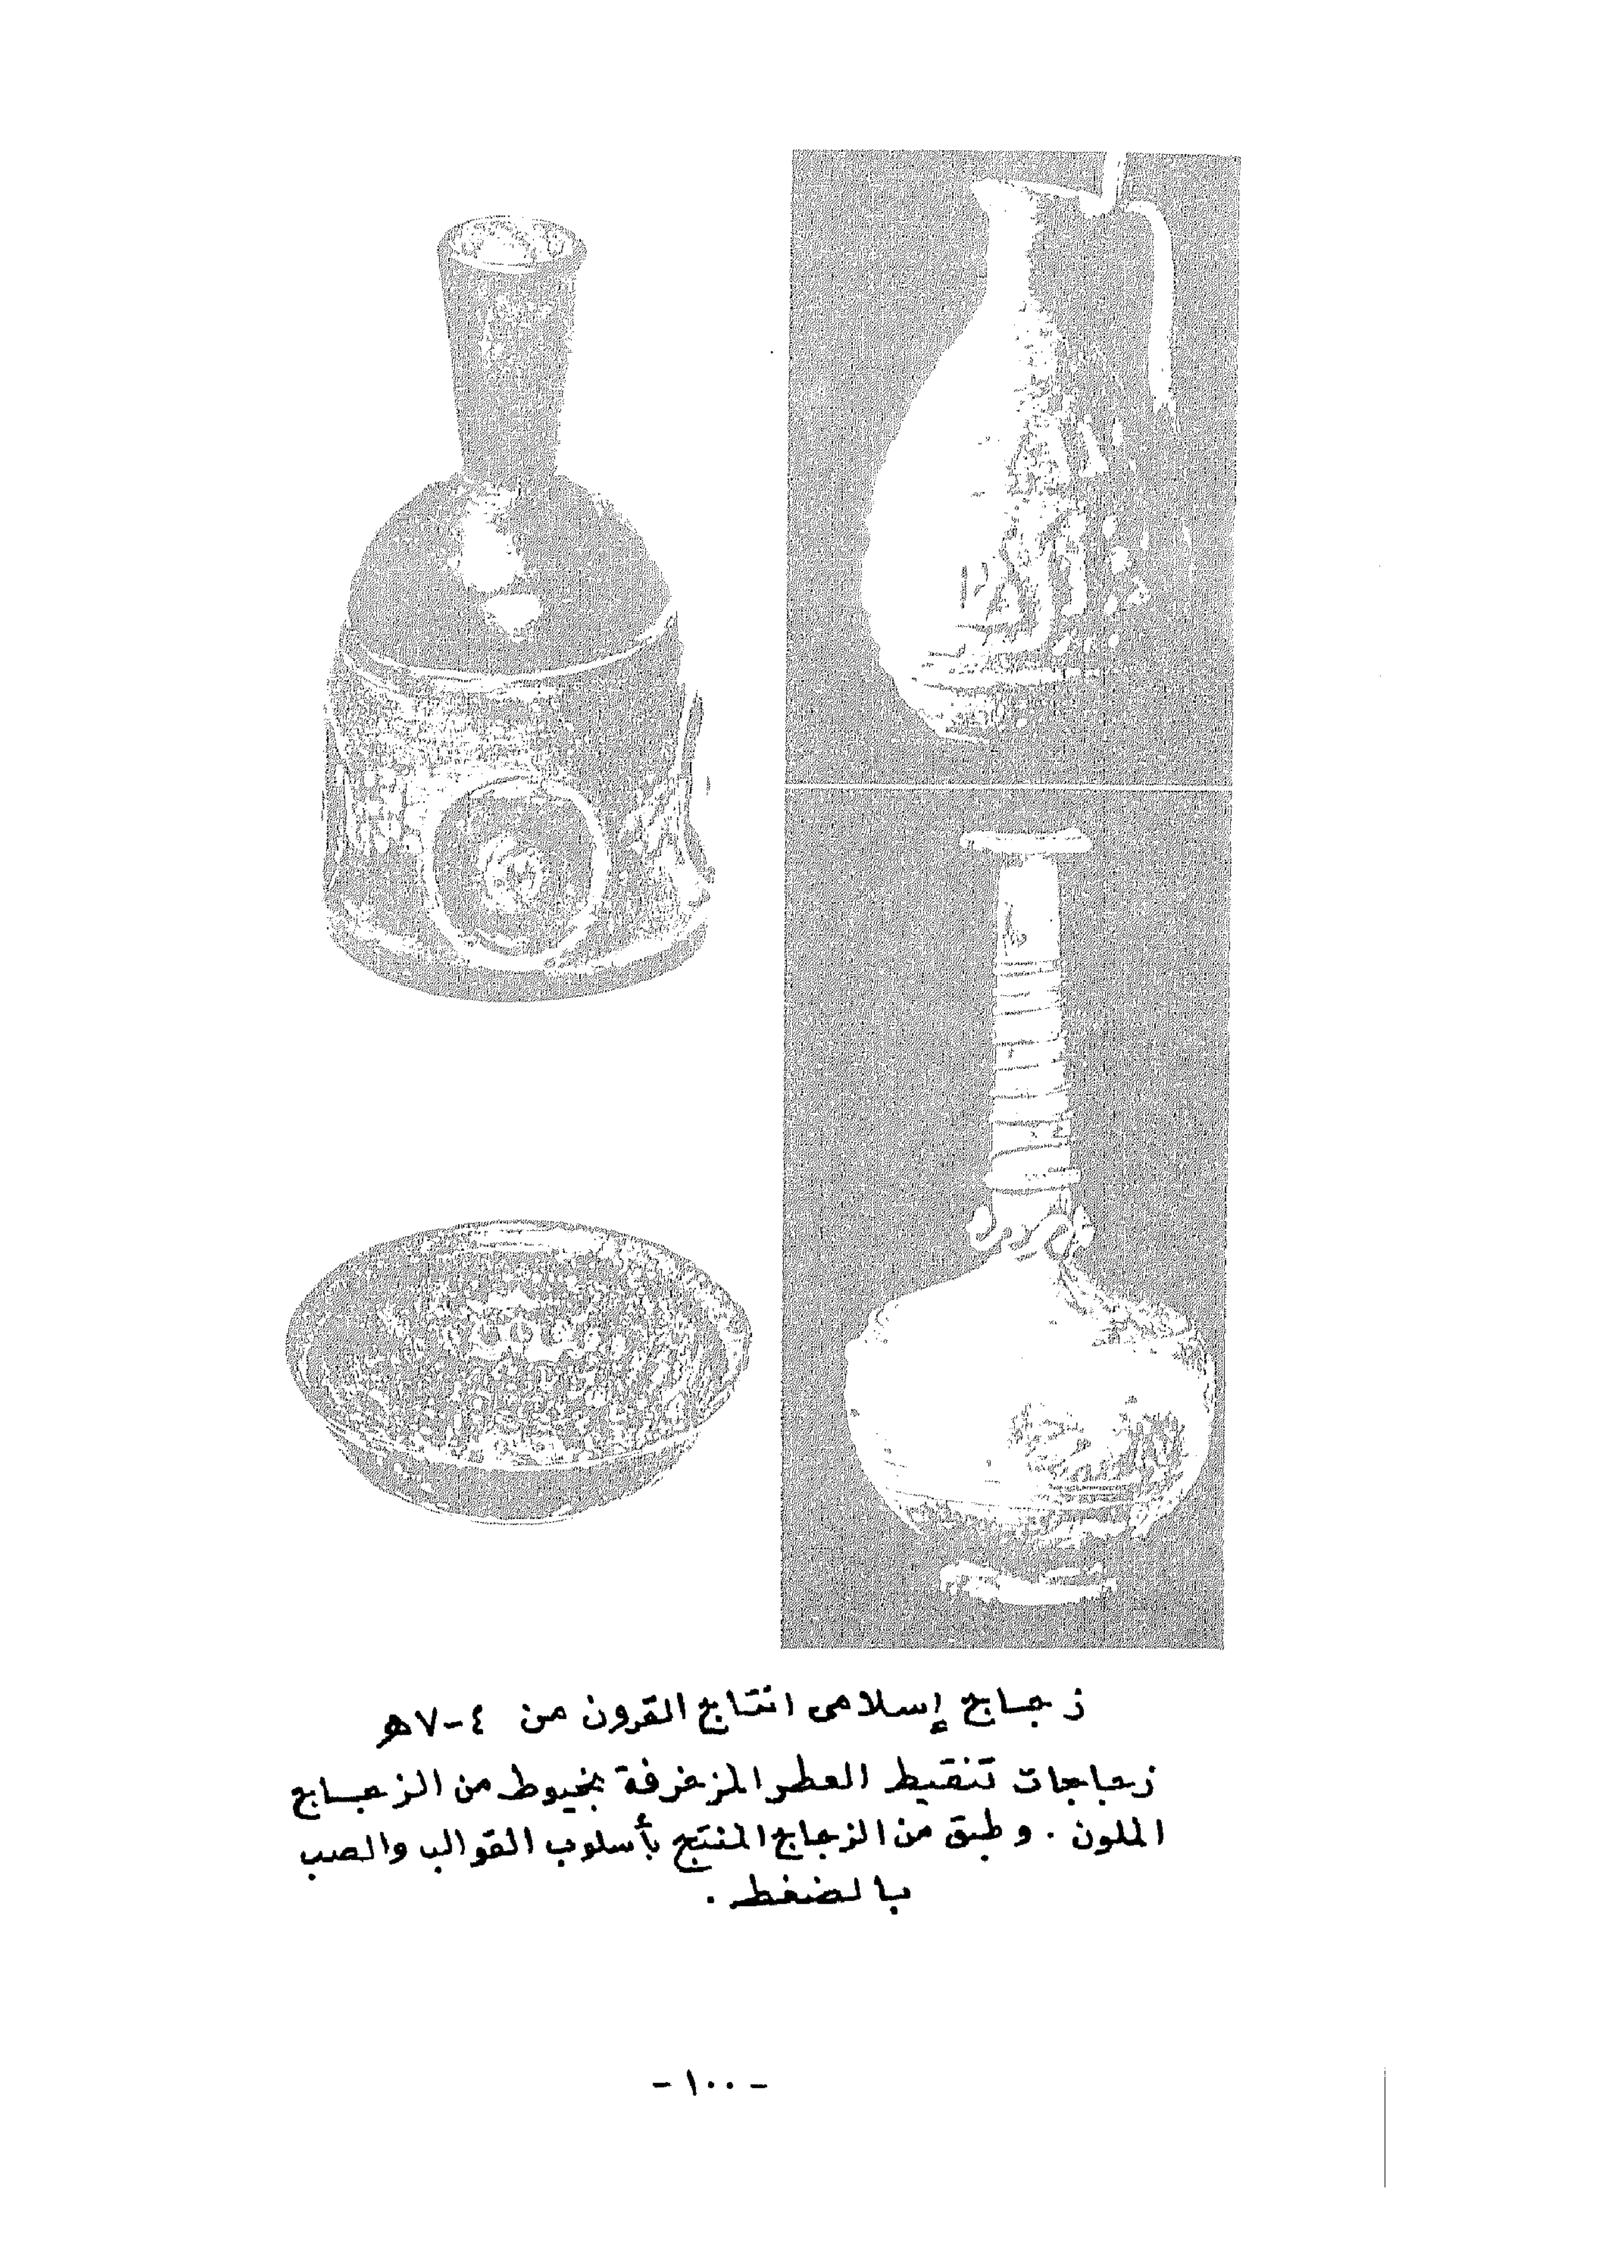 زجاج إسلامى انتاج القرون من ٤-٧هـ
زجاجات تنقيط العطر المزخرفة بخيوط من الزجاج
الملون . وطبق من الزجاج المنتج بأسلوب القوالب والصب
بالضغط .
- ١٠٠ -